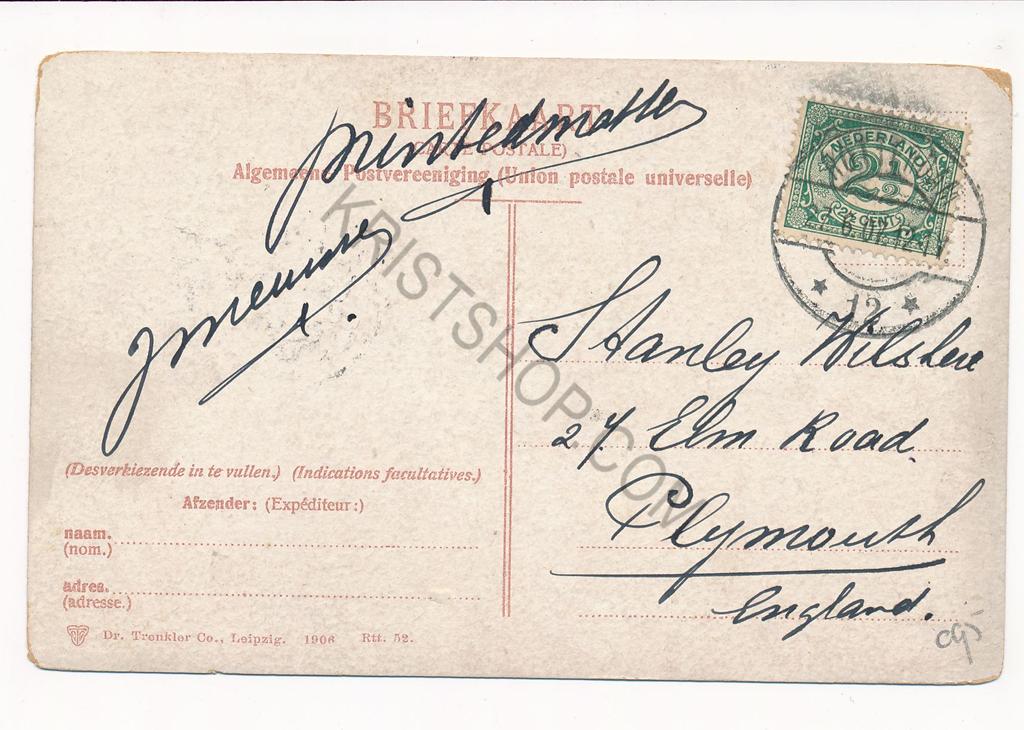 BRIEFKAART
(CARTE POSTALE)
Algemeene Postvereeniging (Union postale universelle)
printedmatter
NEDERLAND
2½
2½ CENT
12
Stanley Wilshere
27 Elm Road.
Plymouth
England.
(Desverkiezende in te vullen.) (Indications facultatives.)
Afzender: (Expéditeur:)
naam.
(nom.)
adres.
(adresse.)
Dr. Trenkler Co., Leipzig. 1906 Rtt. 52.
KRISTSHOP.COM